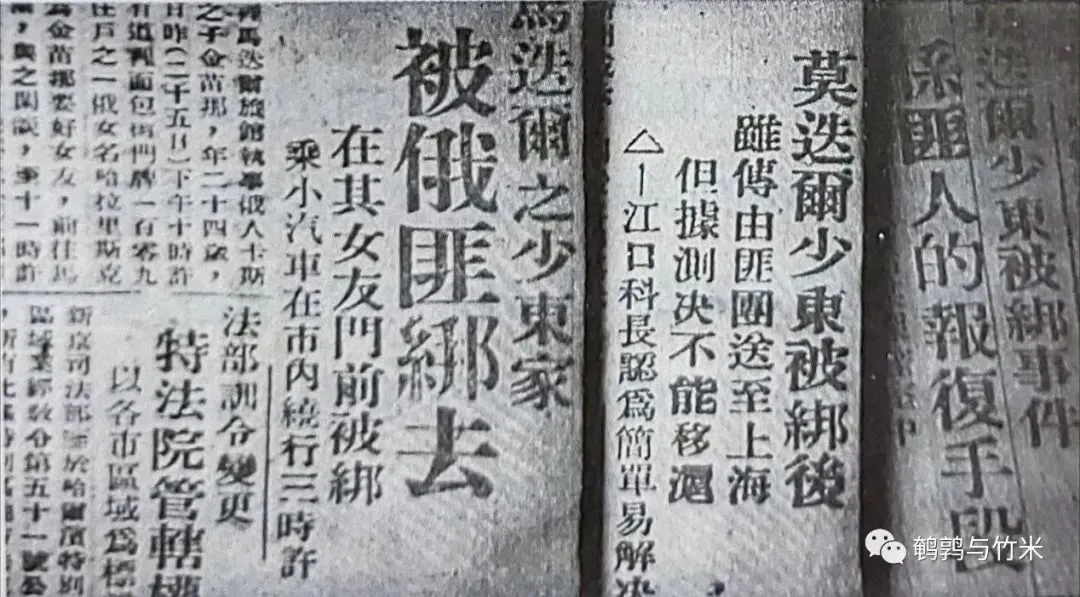 迭爾少東被綁事件
係匪人的報復手段
莫迭爾少東被綁後
雖傳由匪團送至上海
但據測决不能移滬
△—江口科長認爲簡單易解决
馬迭爾之少東家
被俄匪綁去
在其女友門前被綁
乘小汽車在市內繞行三時許
馬迭爾旅館執事俄人卡斯
之子金苗那，年二十四歲，
日昨（二十五日）下午十時許
有道裏面包街門牌一百零九
住戶之一俄女名哈拉里斯克
爲金苗那要好女友，前往馬
，與之閑談，至十一時許
法部訓令變更
特法院管轄權
以各市區域爲標
新京司法部於哈爾濱特別
區域業經敎令第五十一號公
鹌鹑与竹米